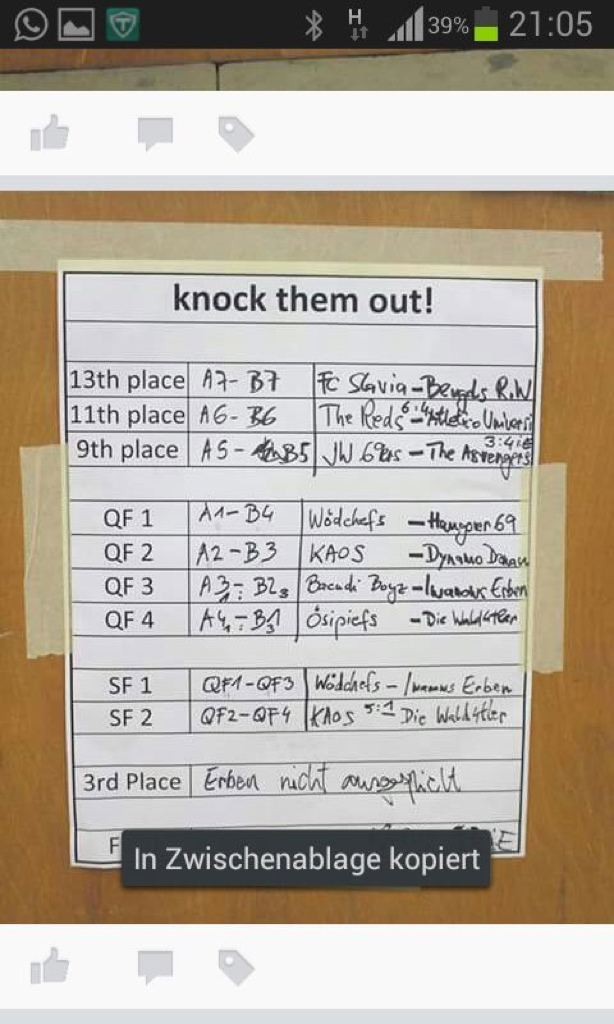 39% 21:05
knock them out!
13th place A7- B7 FC Slavia-Bengals R.W
11th place A6- B6 The Reds 6:4 Atletico Universi
3:4iE
9th place A5- B5 JW 69ers - The Asvengers
QF 1 A1-B4 Wödchefs - Hangover 69
QF 2 A2-B3 KAOS - Dynamo Donau
QF 3 A3 - B2 Bacardi Boyz - Iwanows Erben
QF 4 A4 - B1 Ösipiefs - Die Wald4tler
SF 1 QF1-QF3 Wödchefs - Erben
SF 2 QF2-QF4 KAOS 5:1 Die Wald4tler
3rd Place Erben nicht ausgespielt
In Zwischenablage kopiert